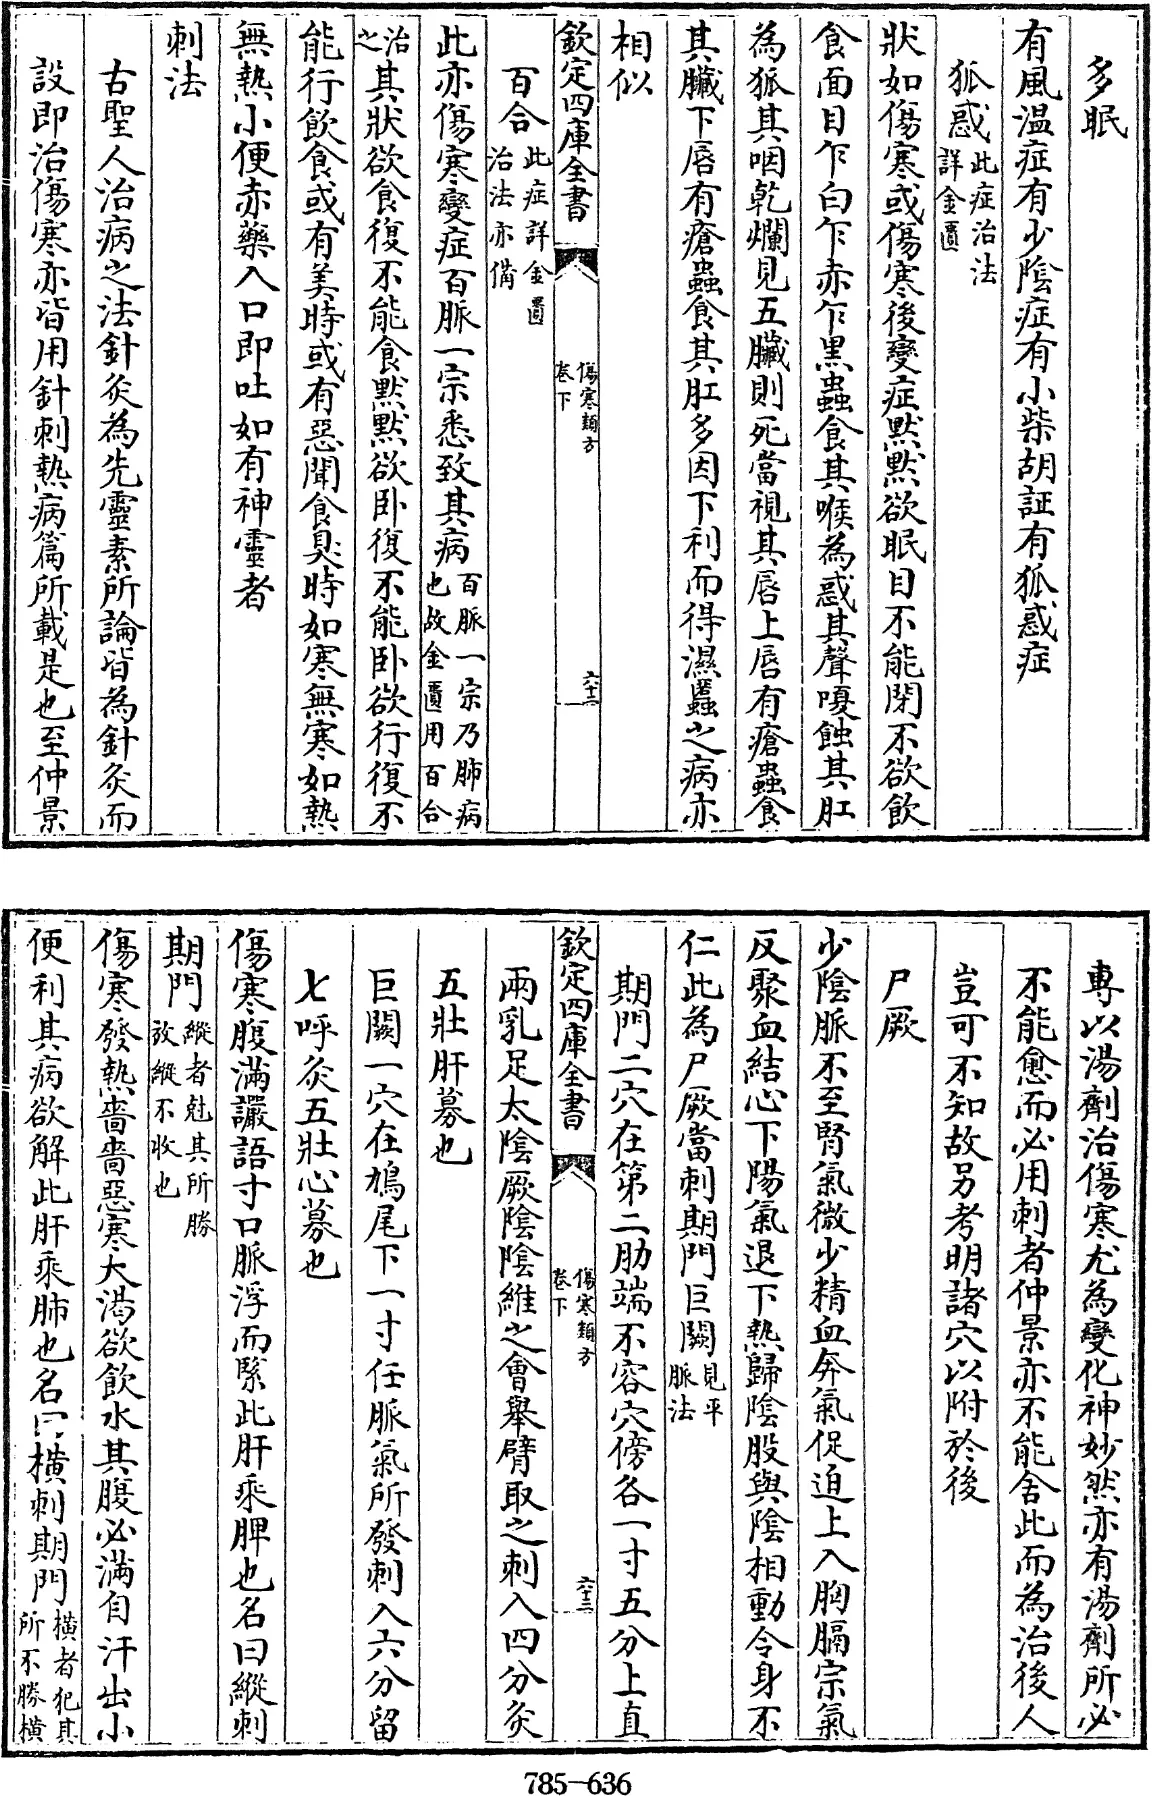 多眠
有風溫症有少陰症有小柴胡証有狐惑症
狐惑此症治法詳金匱
狀如傷寒或傷寒後變症黙黙欲眠目不能閉不欲飲
食面目乍白乍赤乍黒蟲食其喉為惑其聲嗄蝕其肛
為狐其咽乾爛見五臟則死當視其唇上唇有瘡蟲食
其臟下唇有瘡蟲食其肛多因下利而得濕䘌之病亦
相似
欽定四庫全書 傷寒類方卷下 六十二
百合此症詳金匱治法亦備
此亦傷寒變症百脈一宗悉致其病百脈一宗乃肺病也故金匱用百合
治之其狀欲食復不能食黙黙欲卧復不能卧欲行復不
能行飲食或有美時或有惡聞食臭時如寒無寒如熱
無熱小便赤藥入口即吐如有神靈者
刺法
古聖人治病之法針灸為先靈素所論皆為針灸而
設即治傷寒亦皆用針刺熱病篇所載是也至仲景
專以湯劑治傷寒尤為變化神妙然亦有湯劑所必
不能愈而必用刺者仲景亦不能舍此而為治後人
豈可不知故另考明諸穴以附於後
尸厥
少陰脈不至腎氣微少精血奔氣促迫上入胸膈宗氣
反聚血結心下陽氣退下熱歸陰股與陰相動令身不
仁此為尸厥當刺期門巨闕見平脈法
期門二穴在第二肋端不容穴傍各一寸五分上直
欽定四庫全書 傷寒類方卷下 六十三
兩乳足太陰厥陰陰維之會舉臂取之刺入四分灸
五壯肝募也
巨闕一穴在鳩尾下一寸任脈氣所發刺入六分留
七呼灸五壯心募也
傷寒腹滿讝語寸口脈浮而緊此肝乘脾也名曰縱刺
期門縱者尅其所勝放縱不收也
傷寒發熱嗇嗇惡寒大渴欲飲水其腹必滿自汗出小
便利其病欲解此肝乘肺也名曰橫刺期門橫者犯其所不勝橫
785-636